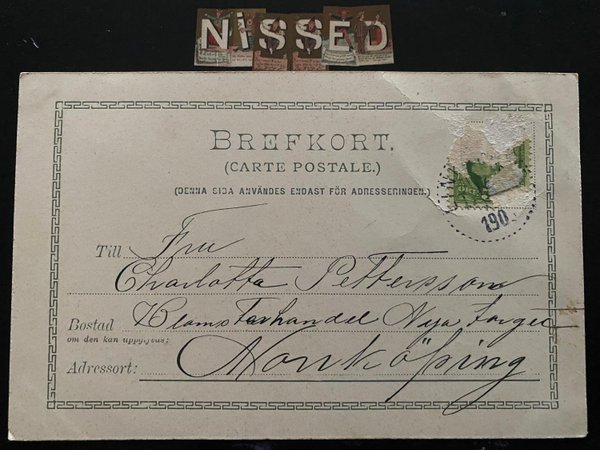 NiSSED
BREFKORT.
(CARTE POSTALE.)
(DENNA SIDA ANVÄNDES ENDAST FÖR ADRESSERINGEN.)
190
Till Fru
Charlotta Pettersson
Bostad Blomsterhandel Nya Torget
om den kan uppgifvas:
Adressort: Norrköping